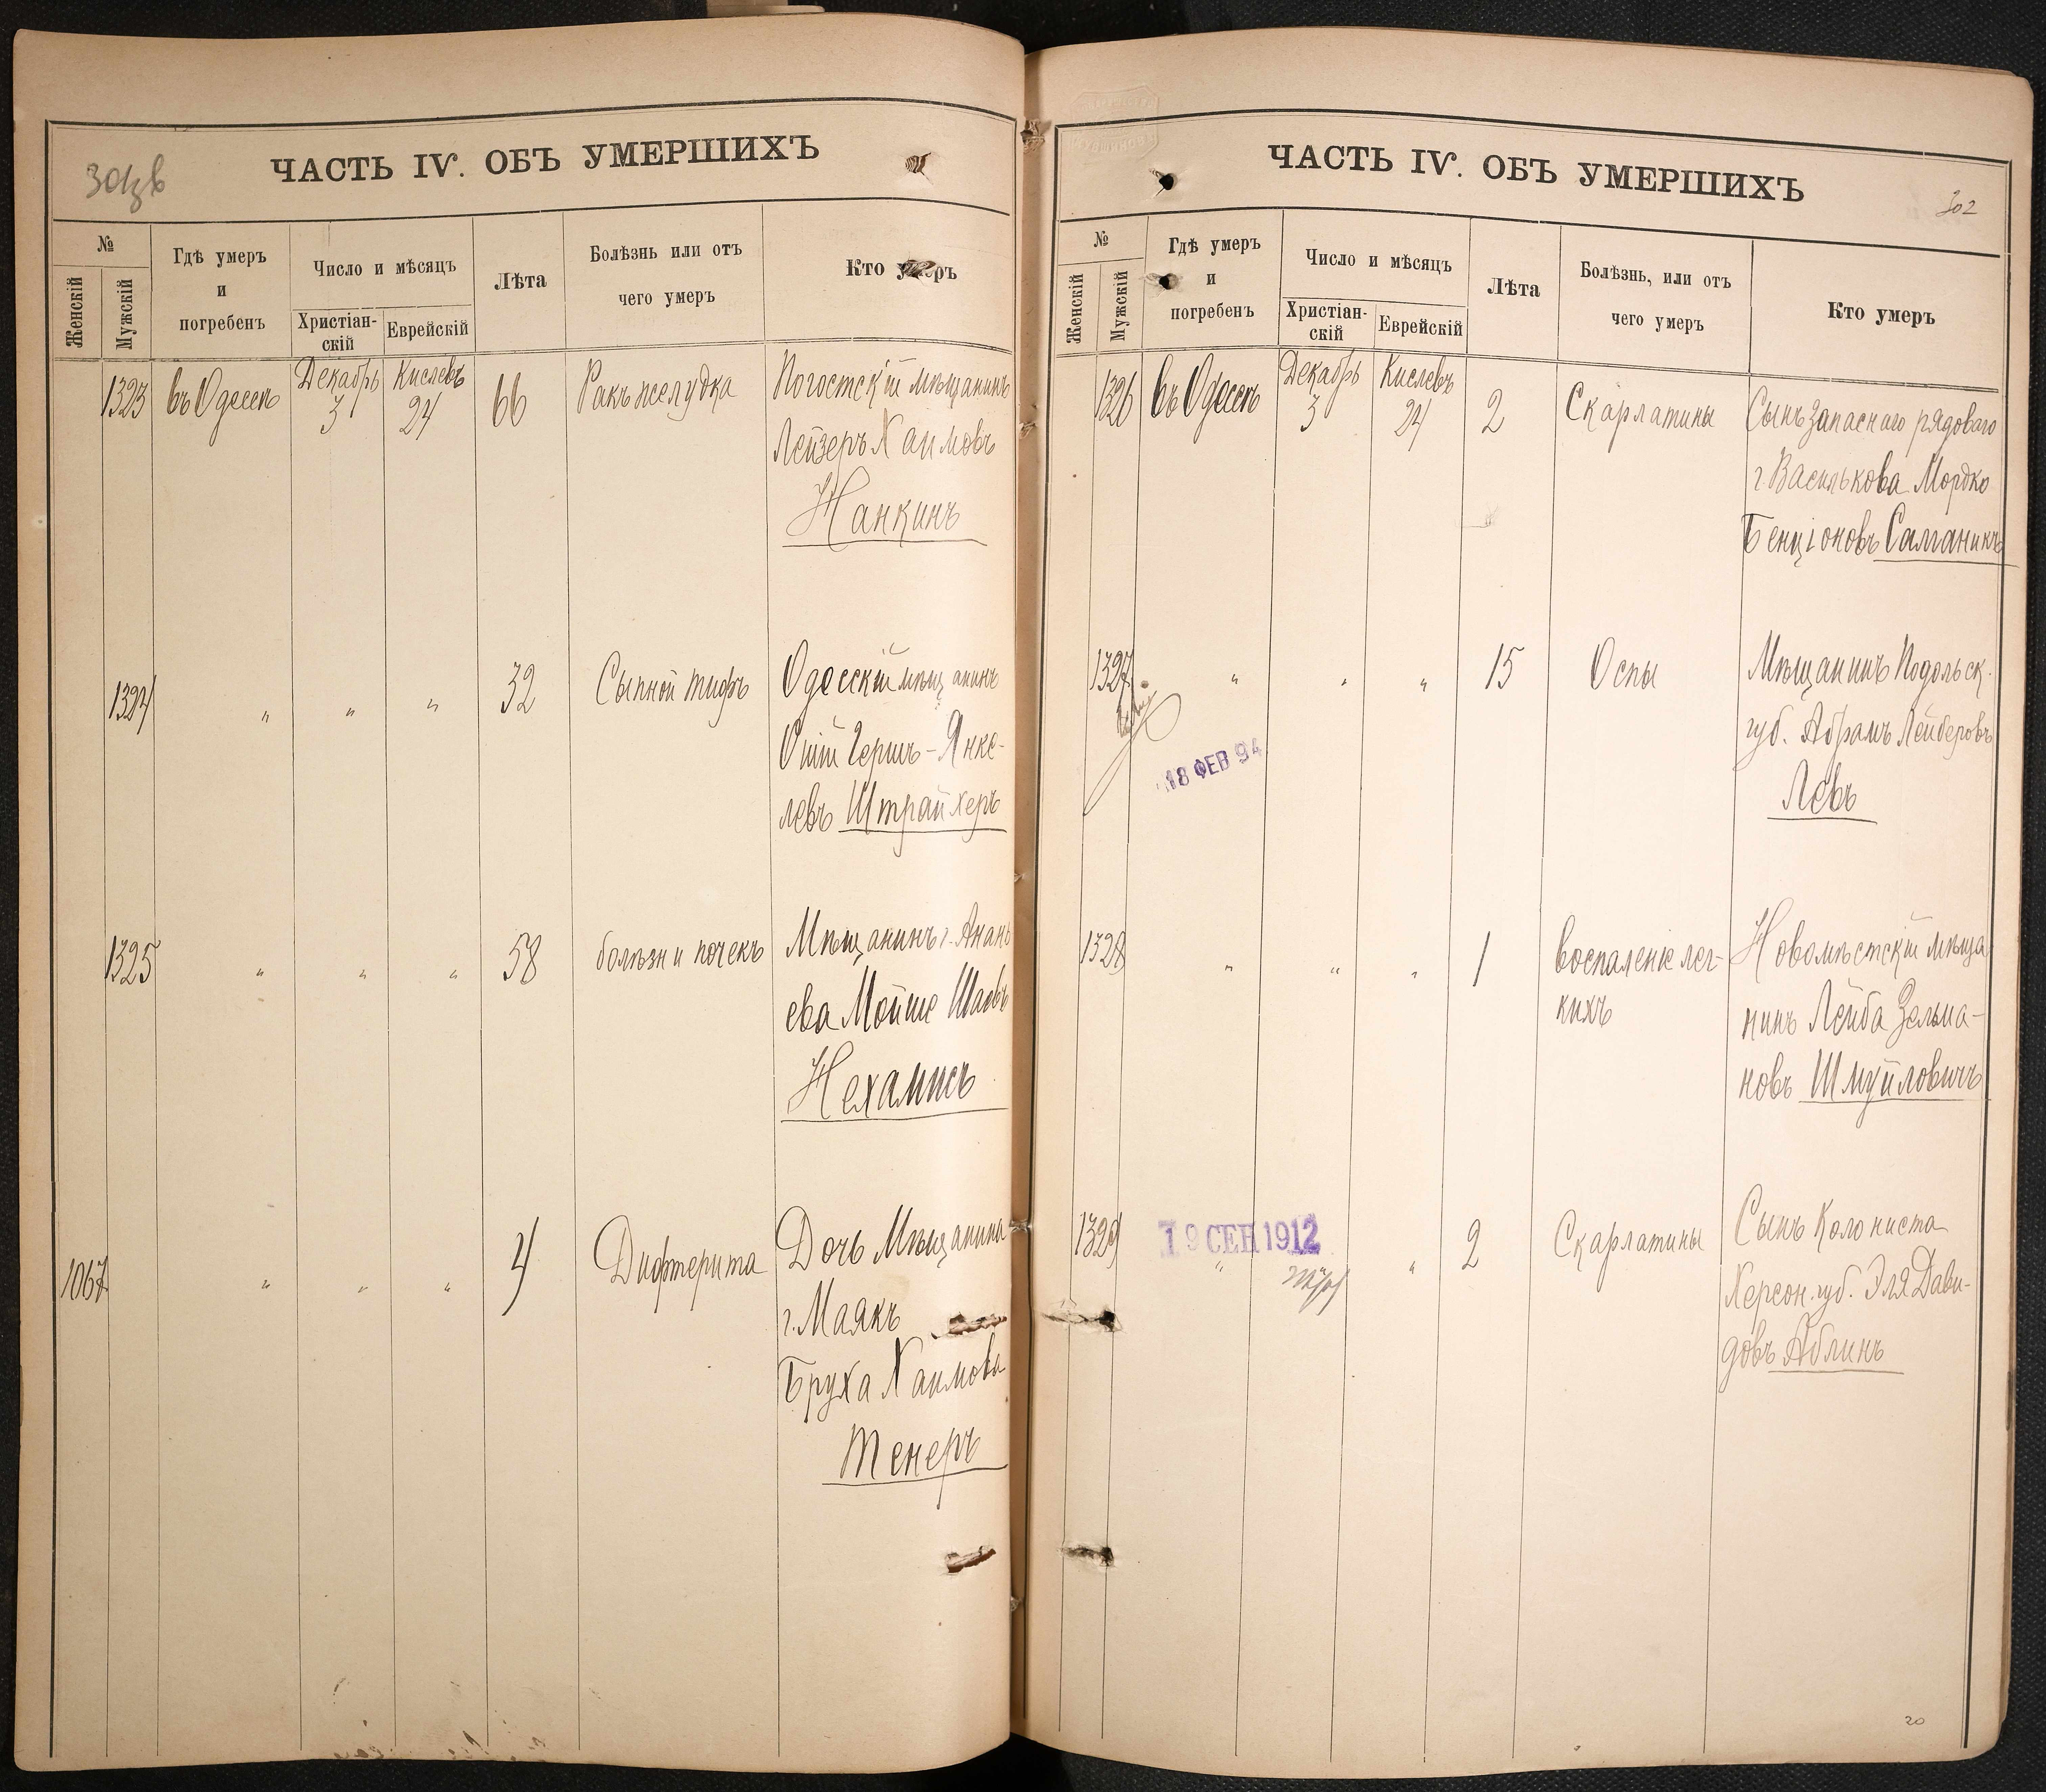 ЧАСТЬ IV. ОБЪ УМЕРШИХЪ
№
Женскій
Мужскій
Гдѣ умеръ
и
погребенъ
Число и мѣсяцъ
Христіан-
скій
Еврейскій
Лѣта
Болѣзнь или отъ
чего умеръ
Кто умеръ
1323 въ Одессѣ Декабрь 3 Кислевъ 24 66 Ракъ желудка Погостскій мѣщанинъ
Лейзеръ Хаимовъ
Нанкинъ
1324 " " " 32 Сыпной тифъ Одесскій мѣщанинъ
Оший Гершъ-Янке-
левъ Штрайхеръ
1325 " " " 58 болѣзни почекъ Мѣщанинъ г. Анань
ева Мойше Шаевъ
Нехамисъ
1067 " " " 4 Дифтерита Дочь Мѣщанина
г. Маякъ
Бруха Хаимова
Тенеръ
ЧАСТЬ IV. ОБЪ УМЕРШИХЪ
302
№
Женскій
Мужскій
Гдѣ умеръ
и
погребенъ
Число и мѣсяцъ
Христіан-
скій
Еврейскій
Лѣта
Болѣзнь, или отъ
чего умеръ
Кто умеръ
1326 въ Одессѣ Декабрь 3 Кислевъ 24 2 Скарлатины Сынъ запаснаго рядоваго
г. Василькова Мордко
Бенціоновъ Салганикъ
1327 " " " 15 Оспы Мѣщанинъ Подольск.
губ. Абрамъ Лейберовъ
Левъ
18 ФЕВ 94
1328 " " " 1 воспаленіе лег-
кихъ
Новомѣстскій мѣща
нинъ Лейба Зельма-
новъ Шмуйловичъ
1329 " " 2 Скарлатины Сынъ Колониста
Херсон. губ. Эля Дави-
довъ Аблинъ
19 СЕН 1912
20